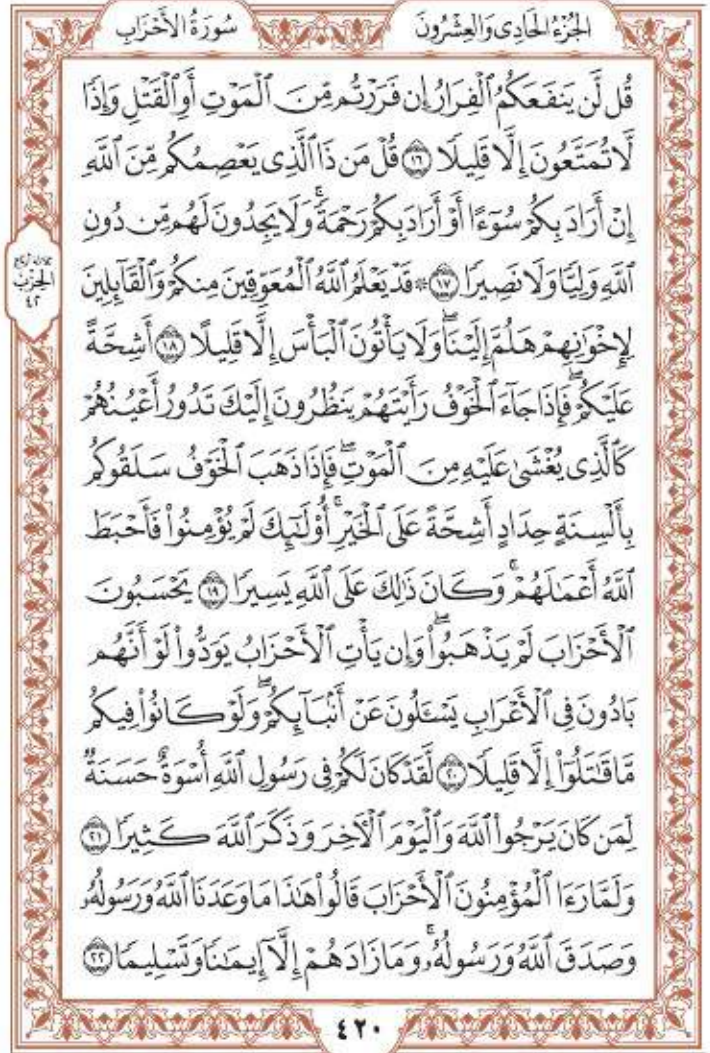 الجُزْءُ الحَادِى وَالعِشْرُونَ
سُورَةُ الأَحْزَابِ
قُل لَّن يَنفَعَكُمُ ٱلْفِرَارُ إِن فَرَرْتُم مِّنَ ٱلْمَوْتِ أَوِ ٱلْقَتْلِ وَإِذًا
لَّا تُمَتَّعُونَ إِلَّا قَلِيلًا ١٦ قُلْ مَن ذَا ٱلَّذِى يَعْصِمُكُم مِّنَ ٱللَّهِ
إِنْ أَرَادَ بِكُمْ سُوٓءًا أَوْ أَرَادَ بِكُمْ رَحْمَةً ۚ وَلَا يَجِدُونَ لَهُم مِّن دُونِ
ٱللَّهِ وَلِيًّا وَلَا نَصِيرًا ١٧ ۞ قَدْ يَعْلَمُ ٱللَّهُ ٱلْمُعَوِّقِينَ مِنكُمْ وَٱلْقَآئِلِينَ
لِإِخْوَٰنِهِمْ هَلُمَّ إِلَيْنَا ۖ وَلَا يَأْتُونَ ٱلْبَأْسَ إِلَّا قَلِيلًا ١٨ أَشِحَّةً
عَلَيْكُمْ ۖ فَإِذَا جَآءَ ٱلْخَوْفُ رَأَيْتَهُمْ يَنظُرُونَ إِلَيْكَ تَدُورُ أَعْيُنُهُمْ
كَٱلَّذِى يُغْشَىٰ عَلَيْهِ مِنَ ٱلْمَوْتِ ۖ فَإِذَا ذَهَبَ ٱلْخَوْفُ سَلَقُوكُم
بِأَلْسِنَةٍ حِدَادٍ أَشِحَّةً عَلَى ٱلْخَيْرِ ۚ أُو۟لَٰٓئِكَ لَمْ يُؤْمِنُوا۟ فَأَحْبَطَ
ٱللَّهُ أَعْمَٰلَهُمْ ۚ وَكَانَ ذَٰلِكَ عَلَى ٱللَّهِ يَسِيرًا ١٩ يَحْسَبُونَ
ٱلْأَحْزَابَ لَمْ يَذْهَبُوا۟ ۖ وَإِن يَأْتِ ٱلْأَحْزَابُ يَوَدُّوا۟ لَوْ أَنَّهُم
بَادُونَ فِى ٱلْأَعْرَابِ يَسْـَٔلُونَ عَنْ أَنۢبَآئِكُمْ ۖ وَلَوْ كَانُوا۟ فِيكُم
مَّا قَٰتَلُوٓا۟ إِلَّا قَلِيلًا ٢٠ لَّقَدْ كَانَ لَكُمْ فِى رَسُولِ ٱللَّهِ أُسْوَةٌ حَسَنَةٌ
لِّمَن كَانَ يَرْجُوا۟ ٱللَّهَ وَٱلْيَوْمَ ٱلْـَٔاخِرَ وَذَكَرَ ٱللَّهَ كَثِيرًا ٢١
وَلَمَّا رَءَا ٱلْمُؤْمِنُونَ ٱلْأَحْزَابَ قَالُوا۟ هَٰذَا مَا وَعَدَنَا ٱللَّهُ وَرَسُولُهُۥ
وَصَدَقَ ٱللَّهُ وَرَسُولُهُۥ ۚ وَمَا زَادَهُمْ إِلَّآ إِيمَٰنًا وَتَسْلِيمًا ٢٢
ثلاثة أرباع
الحِزْب
٤٢
٤٢٠